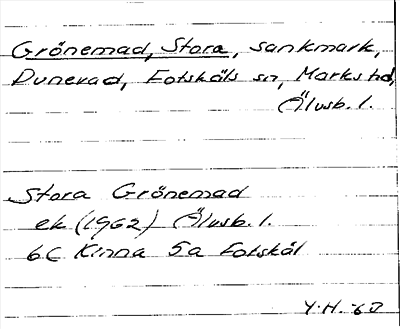 Grönemad, Stora, sankmark,
Dunevad, Fotskäls sn, Marks hd,
Älvsb. l.
Stora Grönemad
ek (1962) Älvsb. l.
6C Kinna 5a Fotskäl
Y.H. -60